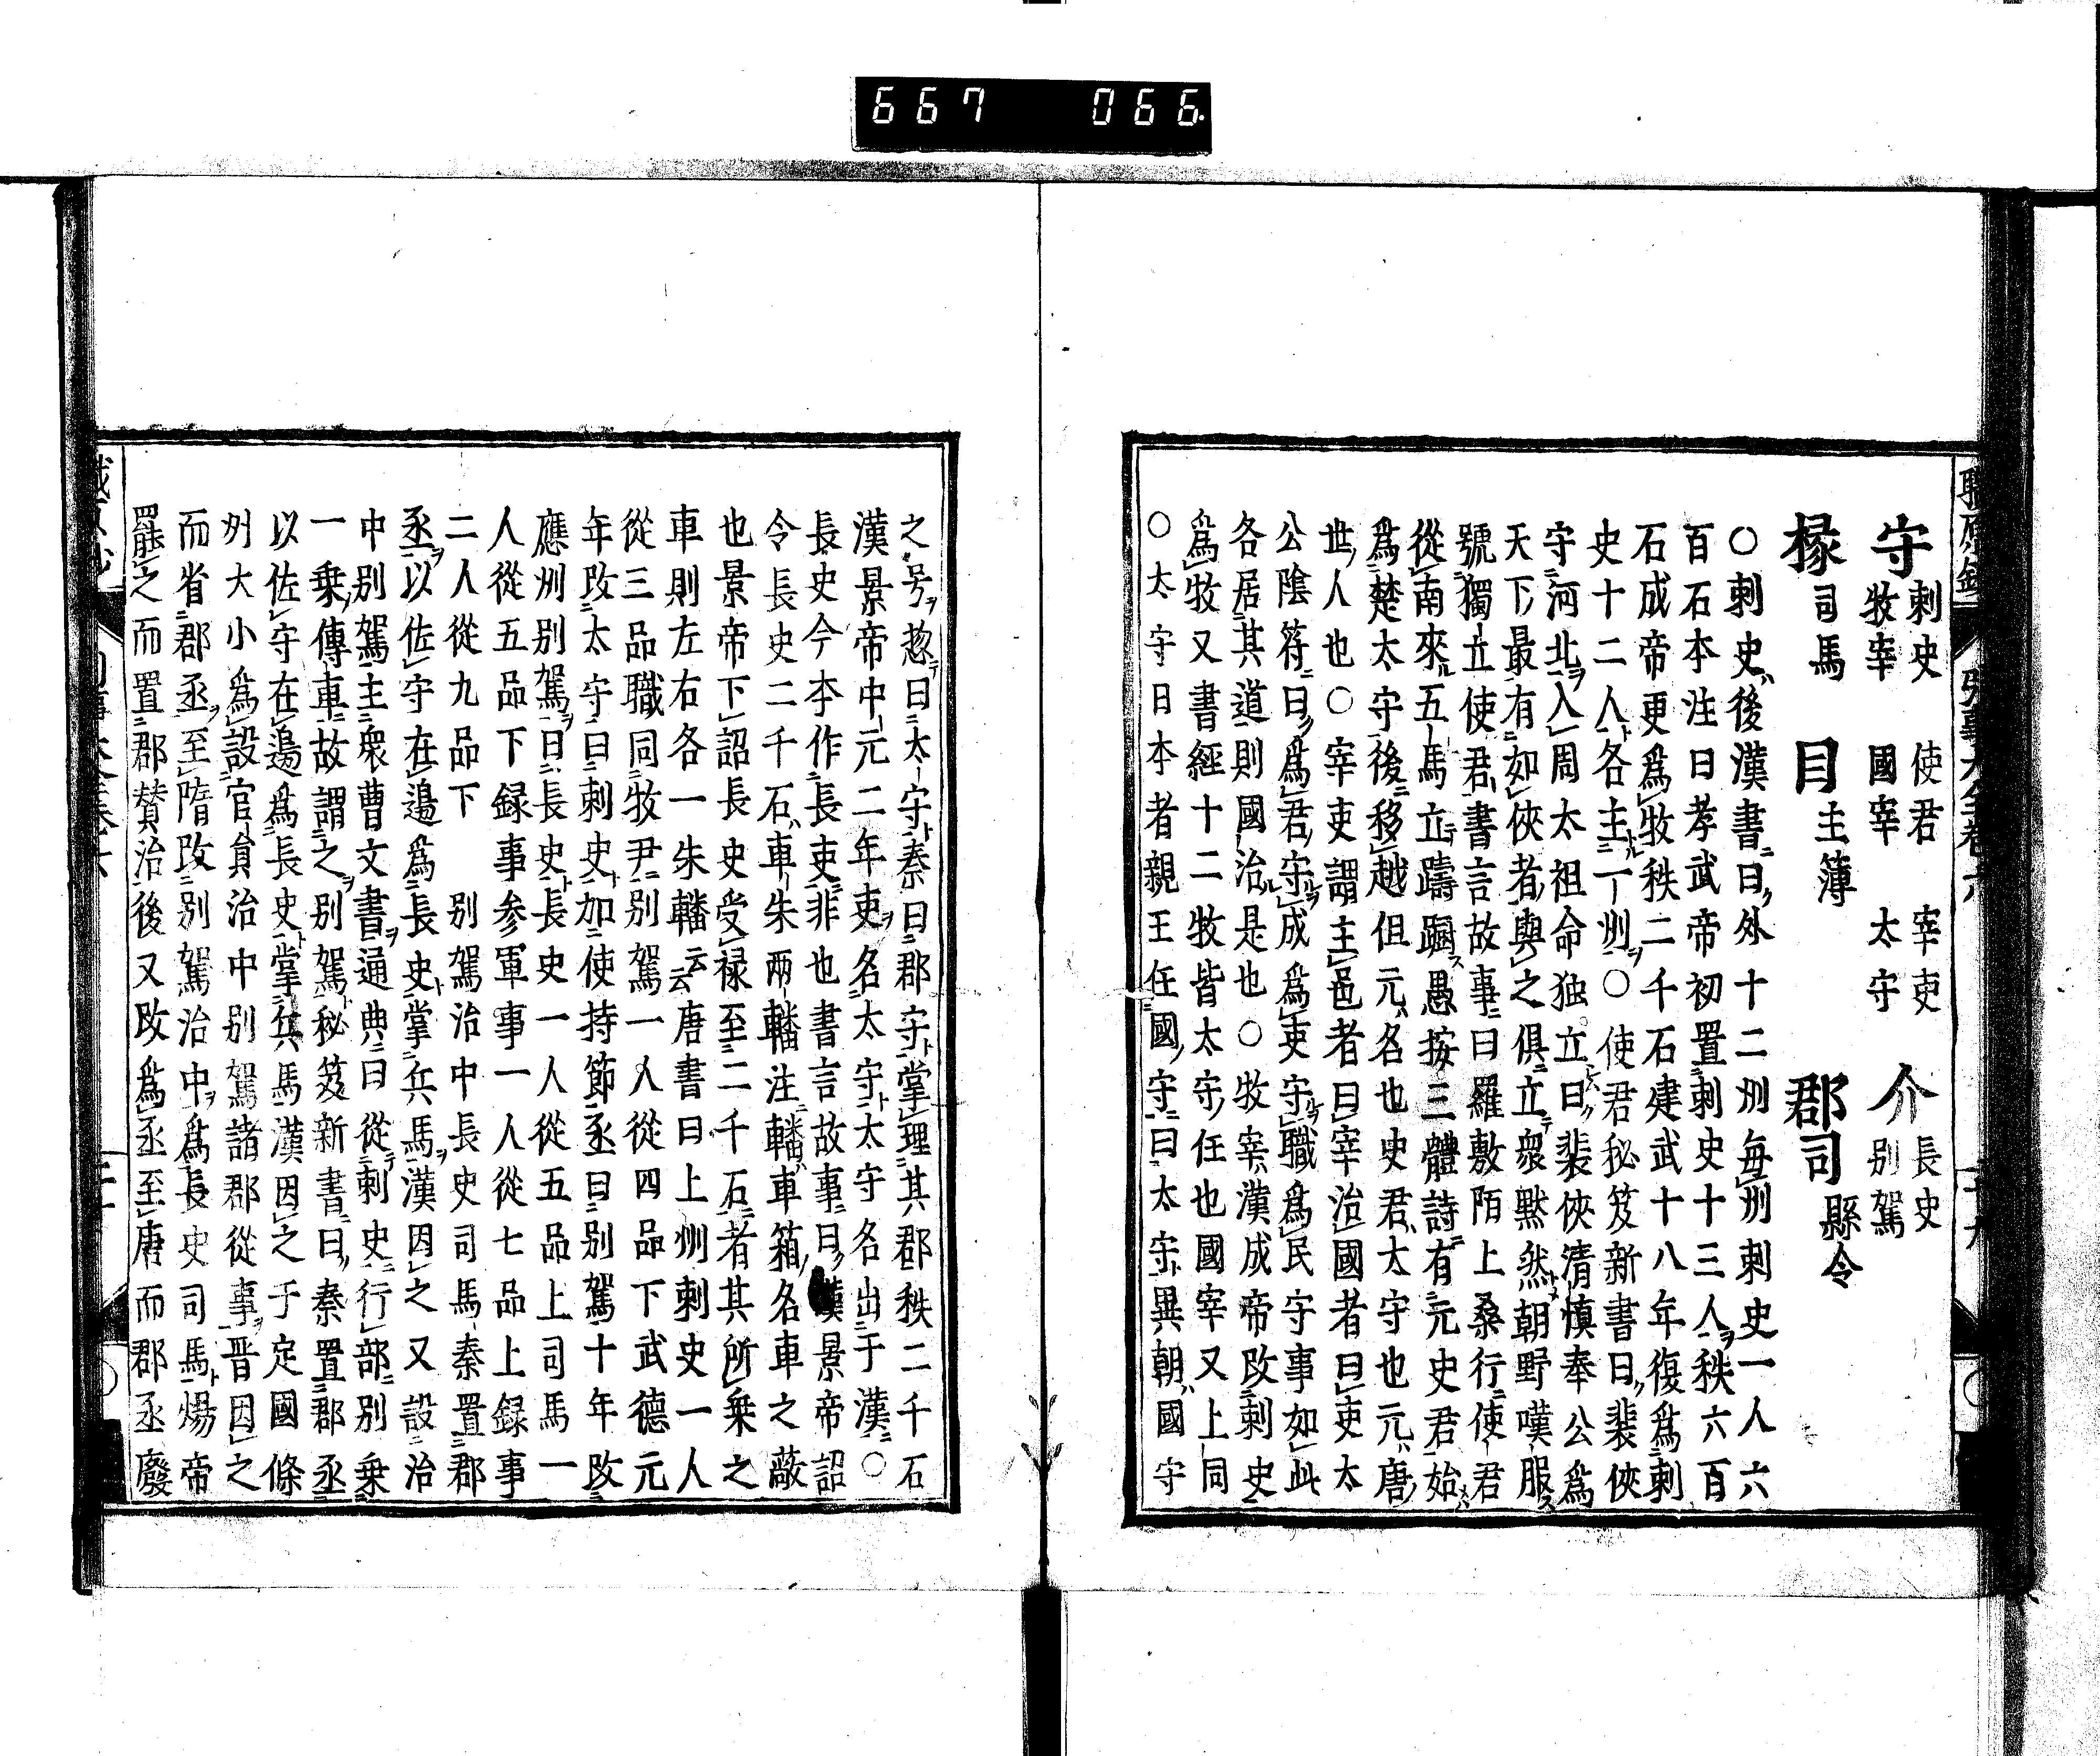 667 066
守 刺史 使君 宰吏 牧宰 國宰 太守 介 長史 别駕
掾 司馬 目 主簿 郡司 縣令
○刺史後漢書曰外十二州毎州刺史一人六
百石本注曰孝武帝初置刺史十三人秩六百
石成帝更爲牧秩二千石建武十八年復爲刺
史十二人各主一州○使君秘笈新書曰裴俠
守河北入周太祖命独立曰裴俠清慎奉公爲
天下最有如俠者與之俱立衆黙然朝野嘆服
號獨立使君書言故事曰羅敷陌上桑行使君
從南來五馬立躊躕愚按三體詩有元史君始
爲楚太守後移越但元名也史君太守也元唐
世人也○宰吏謂主邑者曰宰治國者曰吏太
公陰符曰爲君守成爲吏守職爲民守事如此
各居其道則國治是也○牧宰漢成帝改刺史
爲牧又書經十二牧皆太守任也國宰又上同
○太守日本者親王任國守曰太守異朝國守
之号惣曰太守秦曰郡守掌理其郡秩二千石
漢景帝中元二年吏名太守太守名出于漢○
長史今本作長吏非也書言故事曰漢景帝詔
令長史二千石車朱兩轓注轓車箱名車之蔽
也景帝下詔長史受禄至二千石者其所乗之
車則左右各一朱轓云唐書曰上州刺史一人
從三品職同牧尹别駕一人從四品下武德元
年改太守曰刺史加使持節丞曰别駕十年改
應州别駕曰長史長史一人從五品上司馬一
人從五品下録事参軍事一人從七品上録事
二人從九品下 别駕治中長史司馬秦置郡
丞以佐守在邉爲長史掌兵馬漢因之又設治
中别駕主衆曹文書通典曰從刺史行部别乗
一乗傳車故謂之别駕秘笈新書曰秦置郡丞
以佐守在邉爲長史掌兵馬漢因之于定國條
州大小爲設官貟治中别駕諸郡從事晋因之
而省郡丞至隋改别駕治中爲長史司馬煬帝
罷之而置郡賛治後又改爲丞至唐而郡丞廢